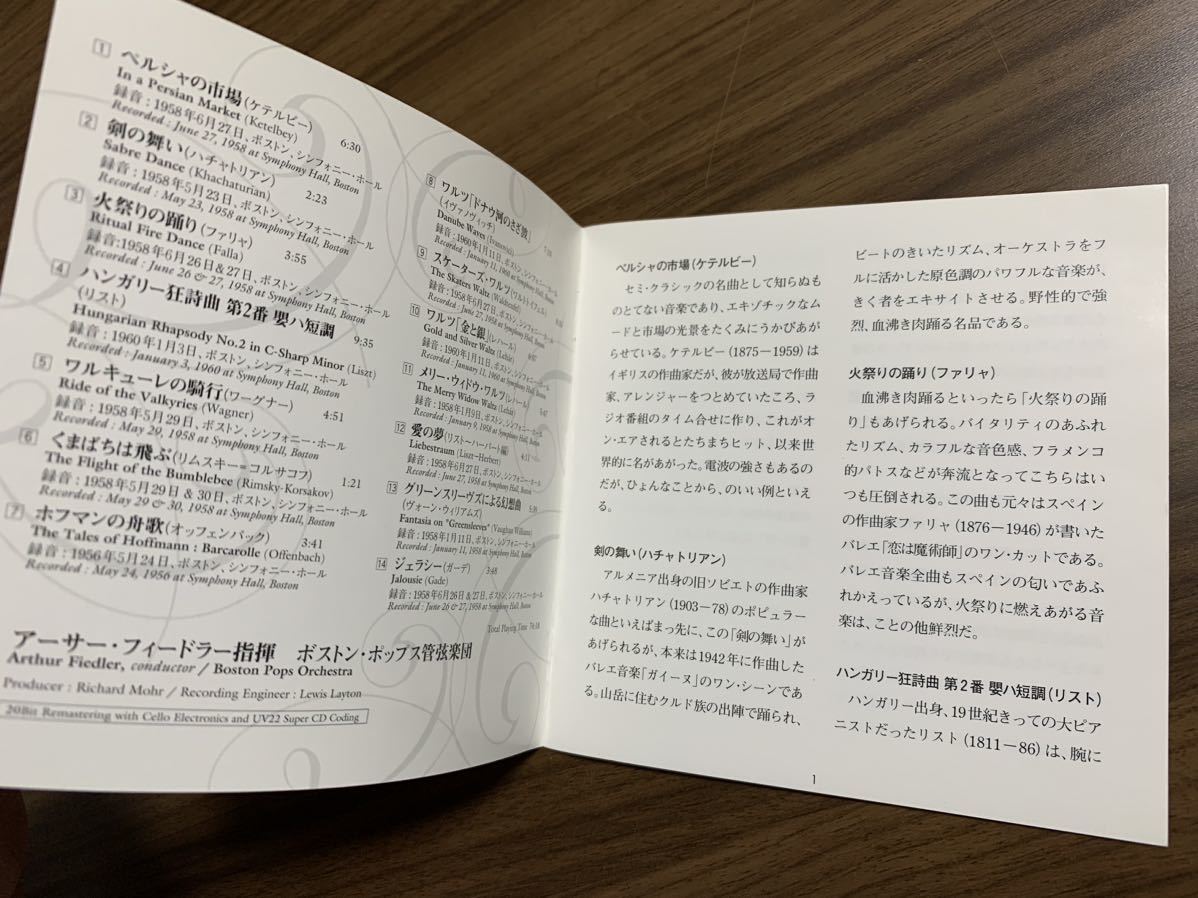 1 ペルシャの市場(ケテルビー)
In a Persian Market (Ketelbey) 6:30
録音:1958年6月27日、ボストン、シンフォニー・ホール
Recorded: June 27, 1958 at Symphony Hall, Boston
2 剣の舞い(ハチャトリアン)
Sabre Dance (Khachaturian) 2:23
録音:1958年5月23日、ボストン、シンフォニー・ホール
Recorded: May 23, 1958 at Symphony Hall, Boston
3 火祭りの踊り(ファリャ)
Ritual Fire Dance (Falla) 3:55
録音:1958年6月26日&27日、ボストン、シンフォニー・ホール
Recorded: June 26 & 27, 1958 at Symphony Hall, Boston
4 ハンガリー狂詩曲 第2番 嬰ハ短調
(リスト) 9:35
Hungarian Rhapsody No.2 in C-Sharp Minor (Liszt)
録音:1960年1月3日、ボストン、シンフォニー・ホール
Recorded: January 3, 1960 at Symphony Hall, Boston
5 ワルキューレの騎行(ワーグナー)
Ride of the Valkyries (Wagner) 4:51
録音:1958年5月29日、ボストン、シンフォニー・ホール
Recorded: May 29, 1958 at Symphony Hall, Boston
6 くまばちは飛ぶ(リムスキー=コルサコフ)
The Flight of the Bumblebee (Rimsky-Korsakov) 1:21
録音:1958年5月29日 & 30日、ボストン、シンフォニー・ホール
Recorded: May 29 & 30, 1958 at Symphony Hall, Boston
7 ホフマンの舟歌(オッフェンバック) 3:41
The Tales of Hoffmann : Barcarolle (Offenbach)
録音:1956年5月24日、ボストン、シンフォニー・ホール
Recorded: May 24, 1956 at Symphony Hall, Boston
8 ワルツ「ドナウ河のさざ波」
(イヴァノヴィッチ)
Danube Waves (Ivanovici)
録音:1960年1月11日、ボストン、シンフォニー・ホール
Recorded: January 11, 1960 at Symphony Hall, Boston
9 スケーターズ・ワルツ(ワルトトイフェル)
The Skaters Waltz (Waldteufel)
録音:1958年6月27日、ボストン、シンフォニー・ホール
Recorded: June 27, 1958 at Symphony Hall, Boston
10 ワルツ「金と銀」(レハール)
Gold and Silver Waltz (Lehár)
録音:1960年1月11日、ボストン、シンフォニー・ホール
Recorded: January 11, 1960 at Symphony Hall, Boston
11 メリー・ウィドウ・ワルツ(レハール)
The Merry Widow Waltz (Lehár)
録音:1958年1月9日、ボストン、シンフォニー・ホール
Recorded: January 9, 1958 at Symphony Hall, Boston
12 愛の夢(リスト〜ハーバート編)
Liebestraum (Liszt-Herbert)
録音:1958年6月27日、ボストン、シンフォニー・ホール
Recorded: June 27, 1958 at Symphony Hall, Boston
13 グリーンスリーヴズによる幻想曲
(ヴォーン・ウィリアムズ)
Fantasia on "Greensleeves" (Vaughan Williams)
録音:1958年1月11日、ボストン、シンフォニー・ホール
Recorded: January 11, 1958 at Symphony Hall, Boston
14 ジェラシー(ガーデ) 3:48
Jalousie (Gade)
録音:1958年6月26日&27日、ボストン、シンフォニー・ホール
Recorded: June 26 & 27, 1958 at Symphony Hall, Boston
Total Playing Time
アーサー・フィードラー指揮 ボストン・ポップス管弦楽団
Arthur Fiedler, conductor / Boston Pops Orchestra
Producer : Richard Mohr / Recording Engineer : Lewis Layton
20Bit Remastering with Cello Electronics and UV22 Super CD Coding
ペルシャの市場(ケテルビー)
セミ・クラシックの名曲として知らぬも
のとてない音楽であり、エキゾチックなム
ードと市場の光景をたくみにうかびあが
らせている。ケテルビー(1875−1959)は
イギリスの作曲家だが、彼が放送局で作曲
家、アレンジャーをつとめていたころ、ラ
ジオ番組のタイム合せに作り、これがオ
ン・エアされるとたちまちヒット、以来世
界的に名があがった。電波の強さもあるの
だが、ひょんなことから、のいい例といえ
る。
剣の舞い(ハチャトリアン)
アルメニア出身の旧ソビエトの作曲家
ハチャトリアン(1903−78)のポピュラー
な曲といえばまっ先に、この「剣の舞い」が
あげられるが、本来は1942年に作曲した
バレエ音楽「ガイーヌ」のワン・シーンであ
る。山岳に住むクルド族の出陣で踊られ、
ビートのきいたリズム、オーケストラをフ
ルに活かした原色調のパワフルな音楽が、
きく者をエキサイトさせる。野性的で強
烈、血沸き肉踊る名品である。
火祭りの踊り(ファリャ)
血沸き肉踊るといったら「火祭りの踊
り」もあげられる。バイタリティのあふれ
たリズム、カラフルな音色感、フラメンコ
的パトスなどが奔流となってこちらはい
つも圧倒される。この曲も元々はスペイン
の作曲家ファリャ(1876−1946)が書いた
バレエ「恋は魔術師」のワン・カットである。
バレエ音楽全曲もスペインの匂いであふ
れかえっているが、火祭りに燃えあがる音
楽は、ことの他鮮烈だ。
ハンガリー狂詩曲 第2番 嬰ハ短調(リスト)
ハンガリー出身、19世紀きっての大ピア
ニストだったリスト(1811−86)は、腕に
1